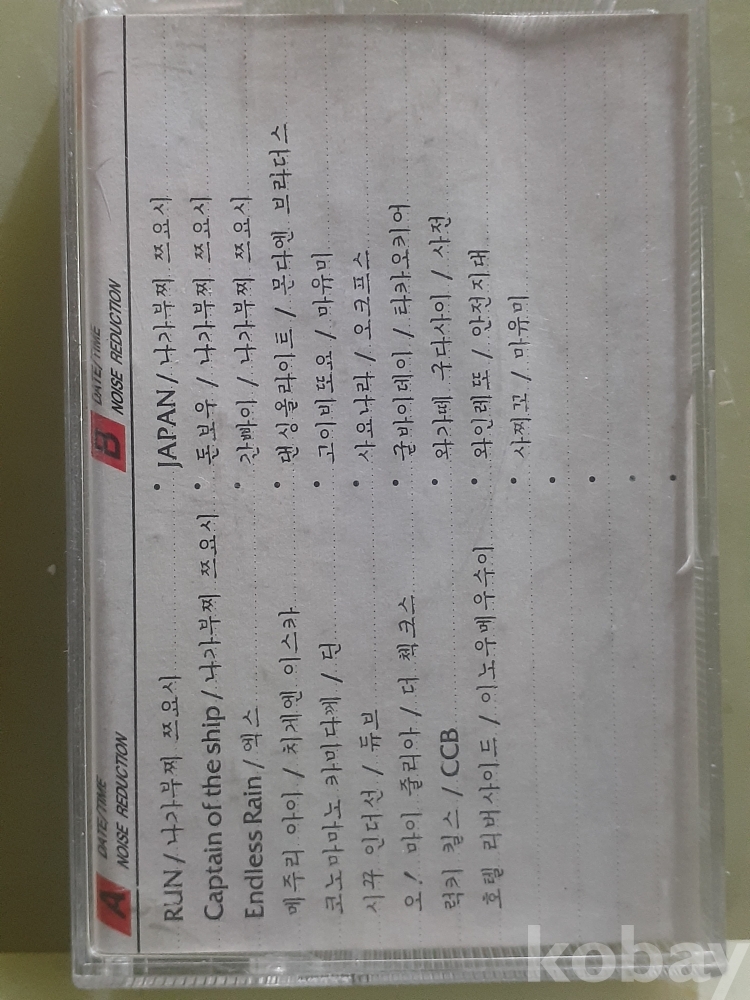 A DATE/TIME
NOISE REDUCTION
RUN / 나가부찌 쯔요시
Captain of the ship / 나가부찌 쯔요시
Endless Rain / 엑스
메주리 아이 / 치게엔 이스카
코노마마노 카미다께 / 딘
시꾸 인더선 / 튜브
오! 마이 쥴리아 / 더 첵크스
럭키 킬스 / CCB
호텔 리버사이드 / 이노우메우수이
B DATE/TIME
NOISE REDUCTION
• JAPAN / 나가부찌 쯔요시
• 돈보우 / 나가부찌 쯔요시
• 간빠이 / 나가부찌 쯔요시
• 댄싱올라이트 / 몬다엔 브라더스
• 고이비또요 / 마유미
• 사요나라 / 오크프스
• 굳바이데이 / 타카오키어
• 와가떼 구다사이 / 사전
• 와인레또 / 안전지대
• 사찌꼬 / 마유미
kobay